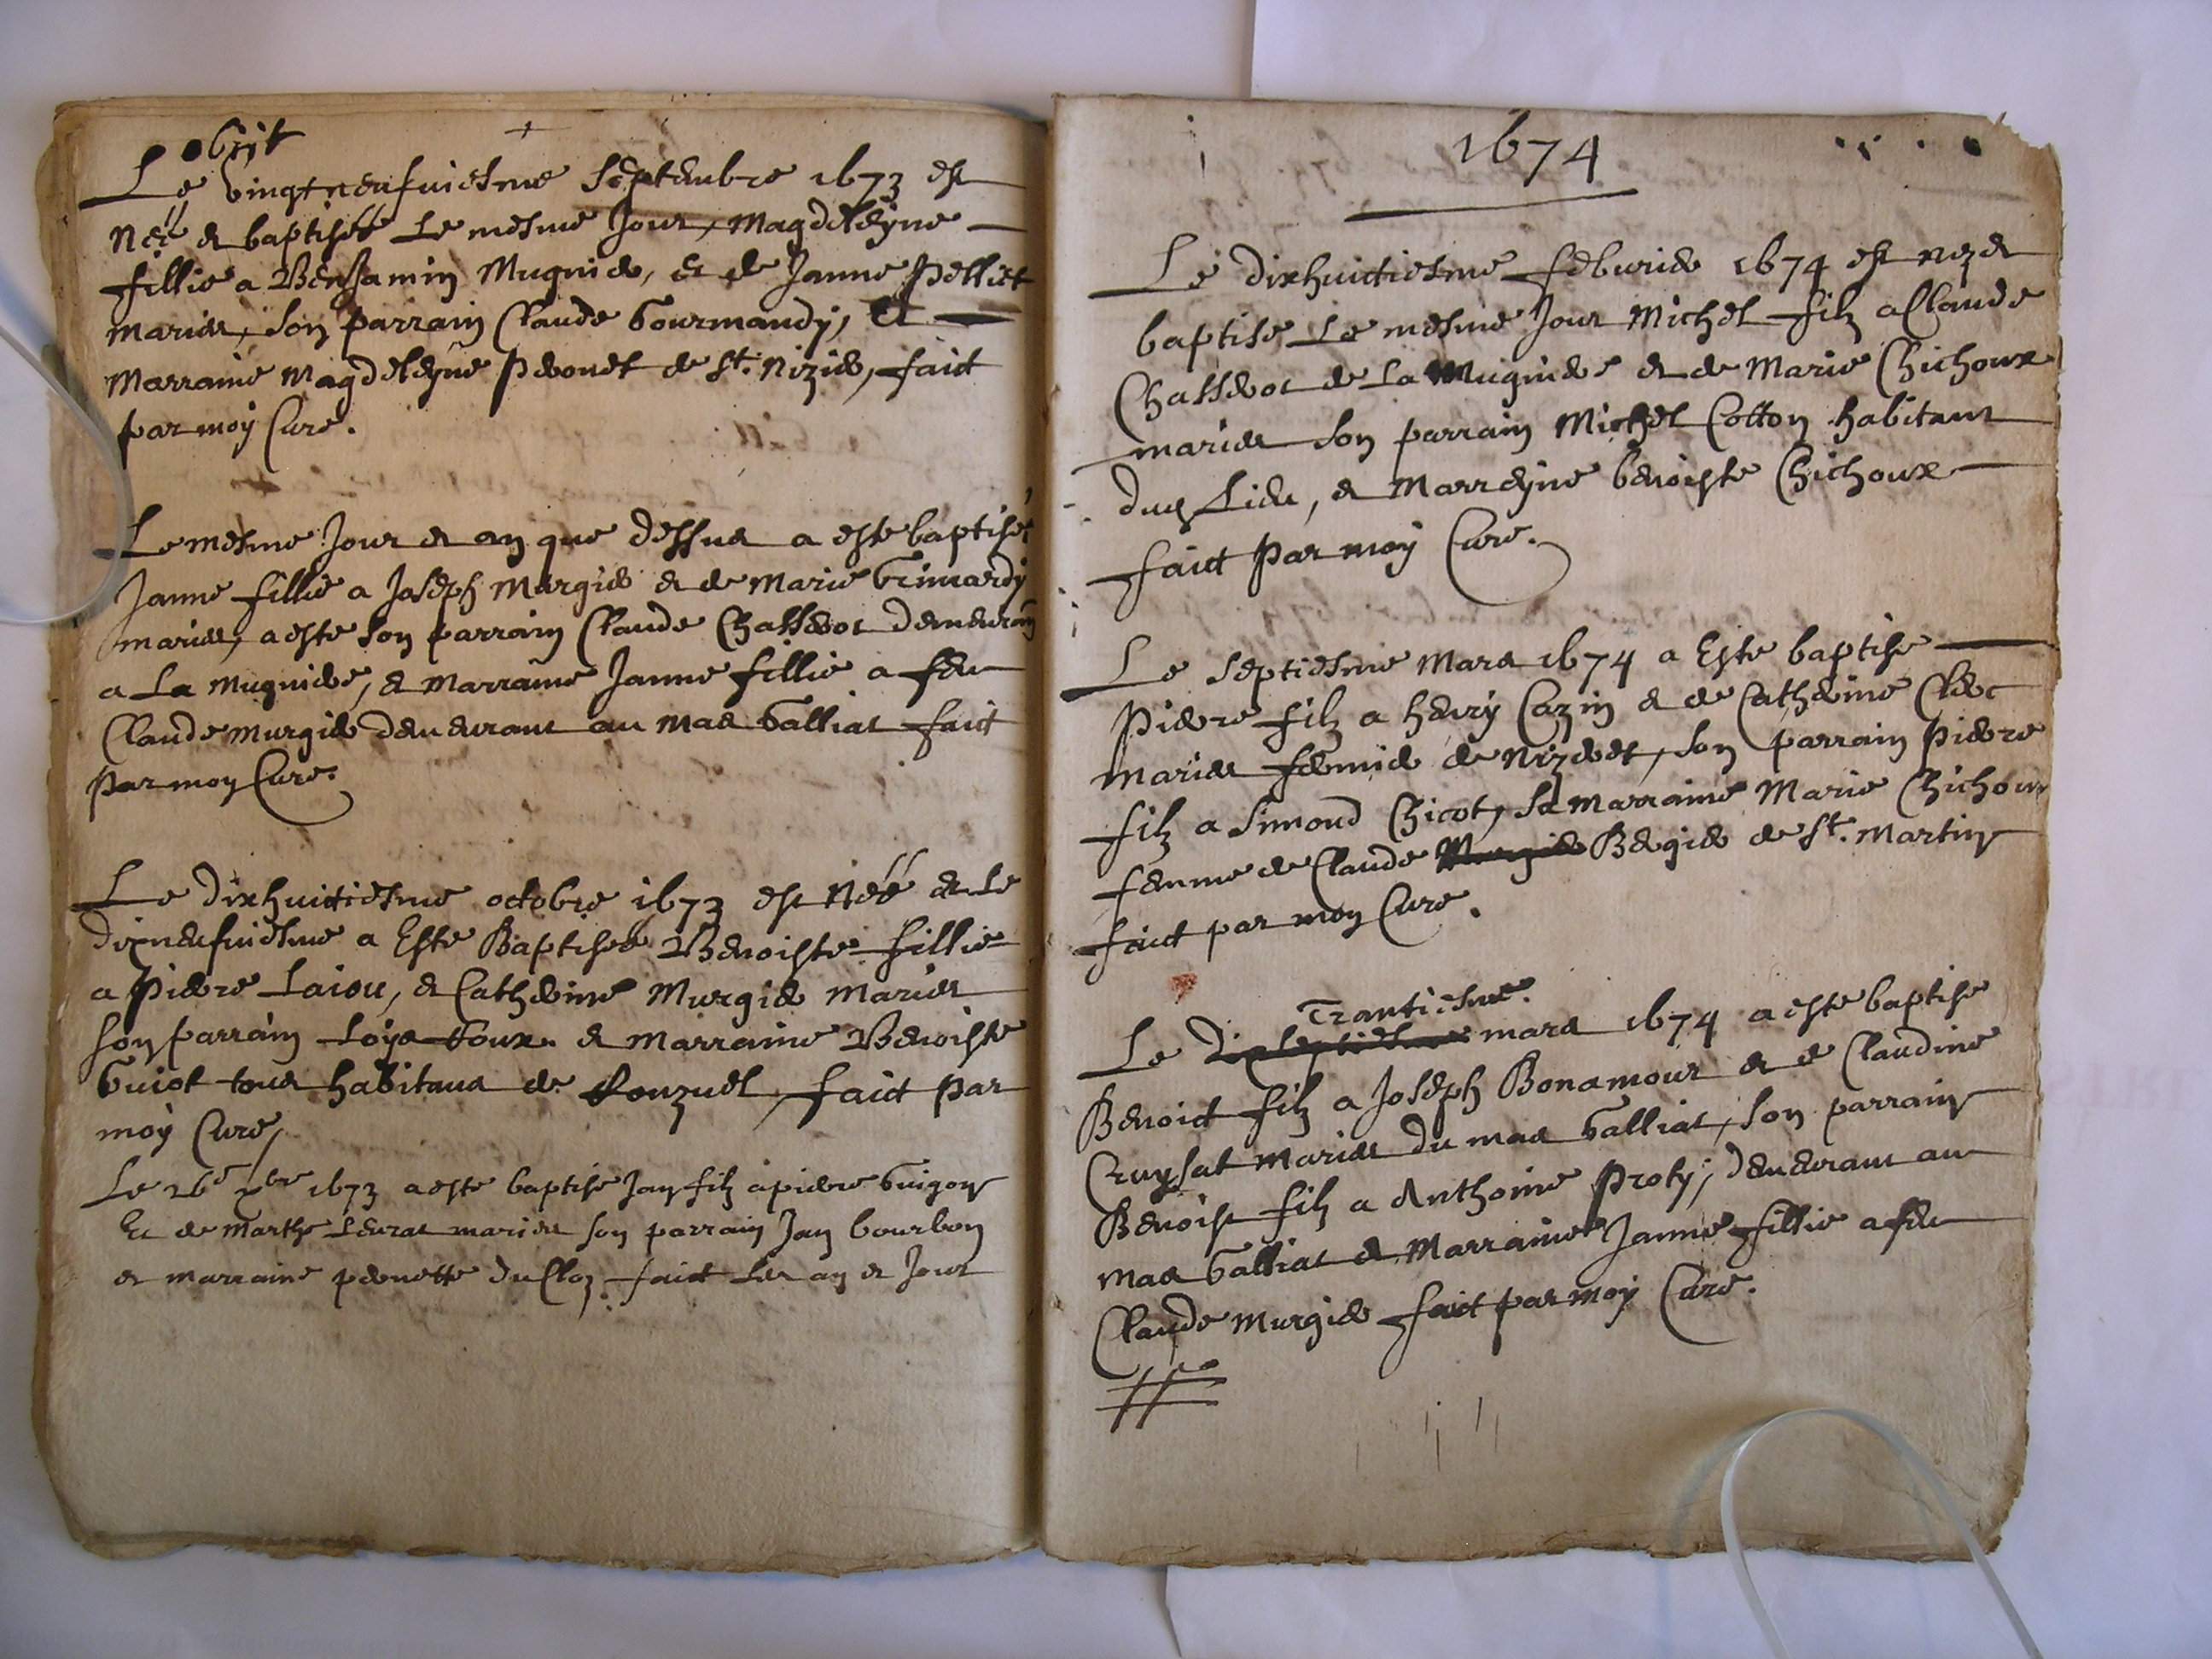 obiit
Le vingtneufuiesme septembre 1673 est
Néé et baptiséé le mesme Jour, Magdeleyne
fillie a Benjamin Mugnier, et de Janne Pelliet
mariés, son parrain Claude Gourmandy, Et
Marraine Magdeleyne Peronet de St. Nizier, faict
par moy Curé.
Le mesme Jour et an que dessus a esté baptiséé
Janne fillie a Joseph Murgier et de Marie Grimardy
mariés, a esté son parrain Claude Chasserot demeurant
a La Mugniere, et marraine Janne fillie a feu
Claude Murgier demeurant au Mas Galliat faict
Par moy Curé.
Le dixhuictiesme octobre 1673 est Néé et Le
dixneufuiesme a Esté Baptiséé Benoiste fillie
a Pierre Laiou, et Catherine Murgier mariés
son parrain Loys Goux et Marraine Benoiste
Guiot tous habitans de Ronzuel, faict par
moy Curé,
Le 26e xbre 1673 a esté baptisé Jan filz a pierre Guigon
Et de Marthe Leurat mariés son parrain Jan bourbon
et marraine pernette du Cloz faict les an et Jour
1674
Le dixhuictiesme feburier 1674 est nez et
baptisé Le mesme Jour Michel filz a Claude
Chasserot de La Mugniere et de Marie Chichoux
mariés son parrain Michel Cotton habitant
dud Lieu, et Marreyne benoiste Chichoux
faict Par moy Curé.
Le septiesme Mars 1674 a Esté baptisé
Pierre filz a henry Cazin et de Catherine Clerc
mariés fermier de Nizeret, son parrain Pierre
filz a Simond Chicot, sa marraine Marie Chichoux
femme de Claude Murgier Bergier de St. Martin
faict par moy Curé.
Trantiesme.
Le dixseptiesme mars 1674 a esté baptisé
Benoict filz a Joseph Bonamour et de Claudine
Cruysat mariés du mas Galliat, son parrain
Benoist filz a Anthoine Proty, demeurant au
mas Galliat et Marraine Janne fillie a feu
Claude Murgier faict par moy Curé.